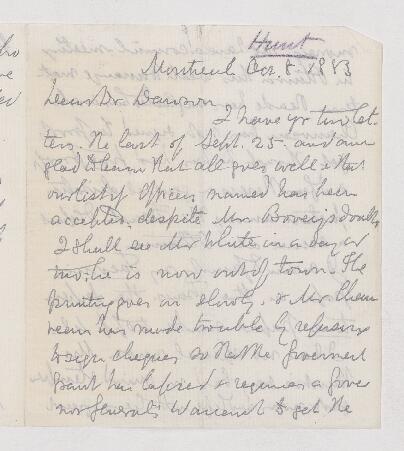 Hunt
Montreal Oct. 8. 1883
Dear Dr Dawson
I have yr two let-
ters. The last of Sept. 25 and am
glad to learn that all goes well & that
our list of Officers named has been
accepted, despite Mr Bovey's doubts
I shall see Mr White in a day or
two. he is now out of town. The
printing goes on slowly, & Mr
has made trouble by refusing
to sign cheques so that the Goverment
grant has lapsed & requires a Gover
nor General's Warrent to get the